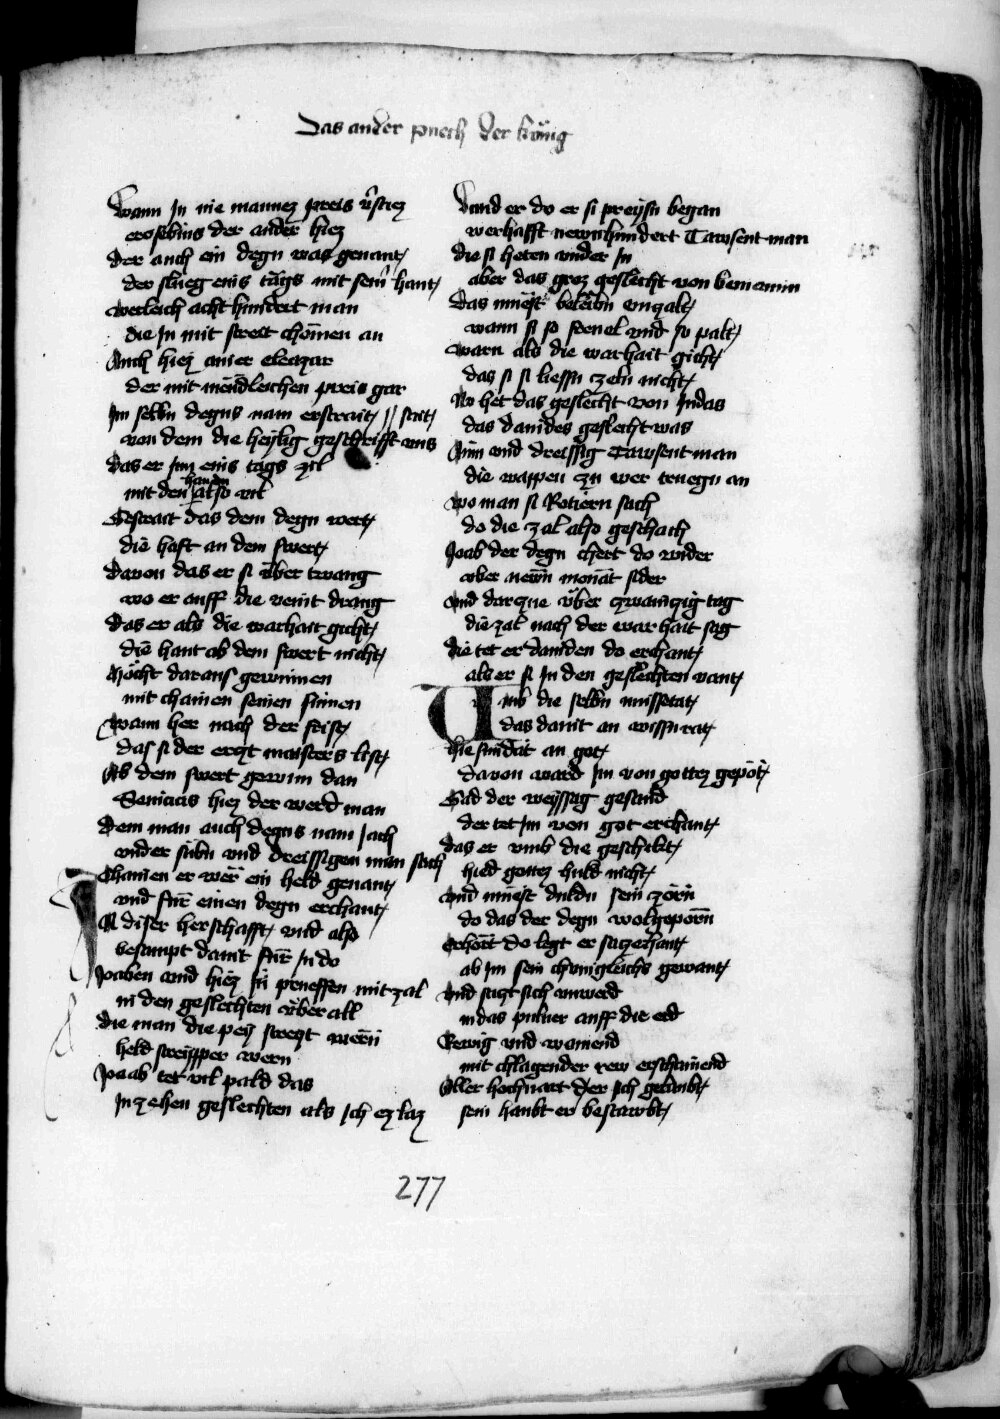 Das ander puech der künig
Wann jn nie mannez preis v̈stiez
erosebius der ander hiez
Der auch ein degn was genant
der slueg enis tags mit sein̄ hant
werleich acht hundert man
die jn mit streit chömen an
Auch hiez ainer eleazar
der mit mēndleichen preis gar
Im selbn degns nam erstrait // strit
von dem die heylig geschrifft uns
Das er jm enis tags zil
mit den handn also vil
Gestrait das dem degn wert
die haft an dem swert
Davon das er si über twang
wo er auff die veint drang
Das er als die warhait gicht
die hant ab dem swert nicht
Möcht daraus gewinnen
mit chainen seinen sinnen
Wann her nach der frist
das si der erczt maisters list
Ab dem swert gewun dan
Semaias hiez der werd man
Dem man auch degns nam jach
under sübn und dreissigen man sach
Chainen er wer ein held genant
und für einen degn erchant
IN diser herschafft und also
besampt davit für jn do
Joaben und hiez jn prueffen mit zal
in den geslechten über all
die man die pey streyt wērn
held streytper wern
Joab tet vil pald das
In zehen geslechten als ich ez laz
Vand er do er si preysn began
werhafft newnhundert Tawsent man
die si heten under jn
aber das groz geslecht von beniamin
Das muest beleibn ungalt
wann si so snel und so palt
Warn als die warhait gicht
das si si liessn zeln nicht
No het das geslecht von Judas
das davides geslecht was
Ainn und dreissig Tawsent man
die wappen zu wer truegn an
wo man si Rotiern sach
do die zal also geschach
Joab der degn chert do wider
uber newn monat sider
und darzue über zwainzig tag
die zal nach der warhait sag
Die tet er daviden do erchant
als er si in den geslechten vant
Umb die selbn missetat
das davit an wissn rat
Hie sundat an got
davon ward jm von gottez gepot
Gad der weyssag gesand
der tet jm von got erchant
das er umb die geschicht
hiet gottez huld nicht
und muest duldn sein zorn
do das der degn wolgeporn
Erhört do legt er sazehant
ab jm sein chünigleichs gewant
und sazt sich unwerd
in das pulver auff die erd
Rewig und wainend
mit chlagender rew erschainend
Aller hochvart der sich gelaubt
sein haubt er bestawbt
277